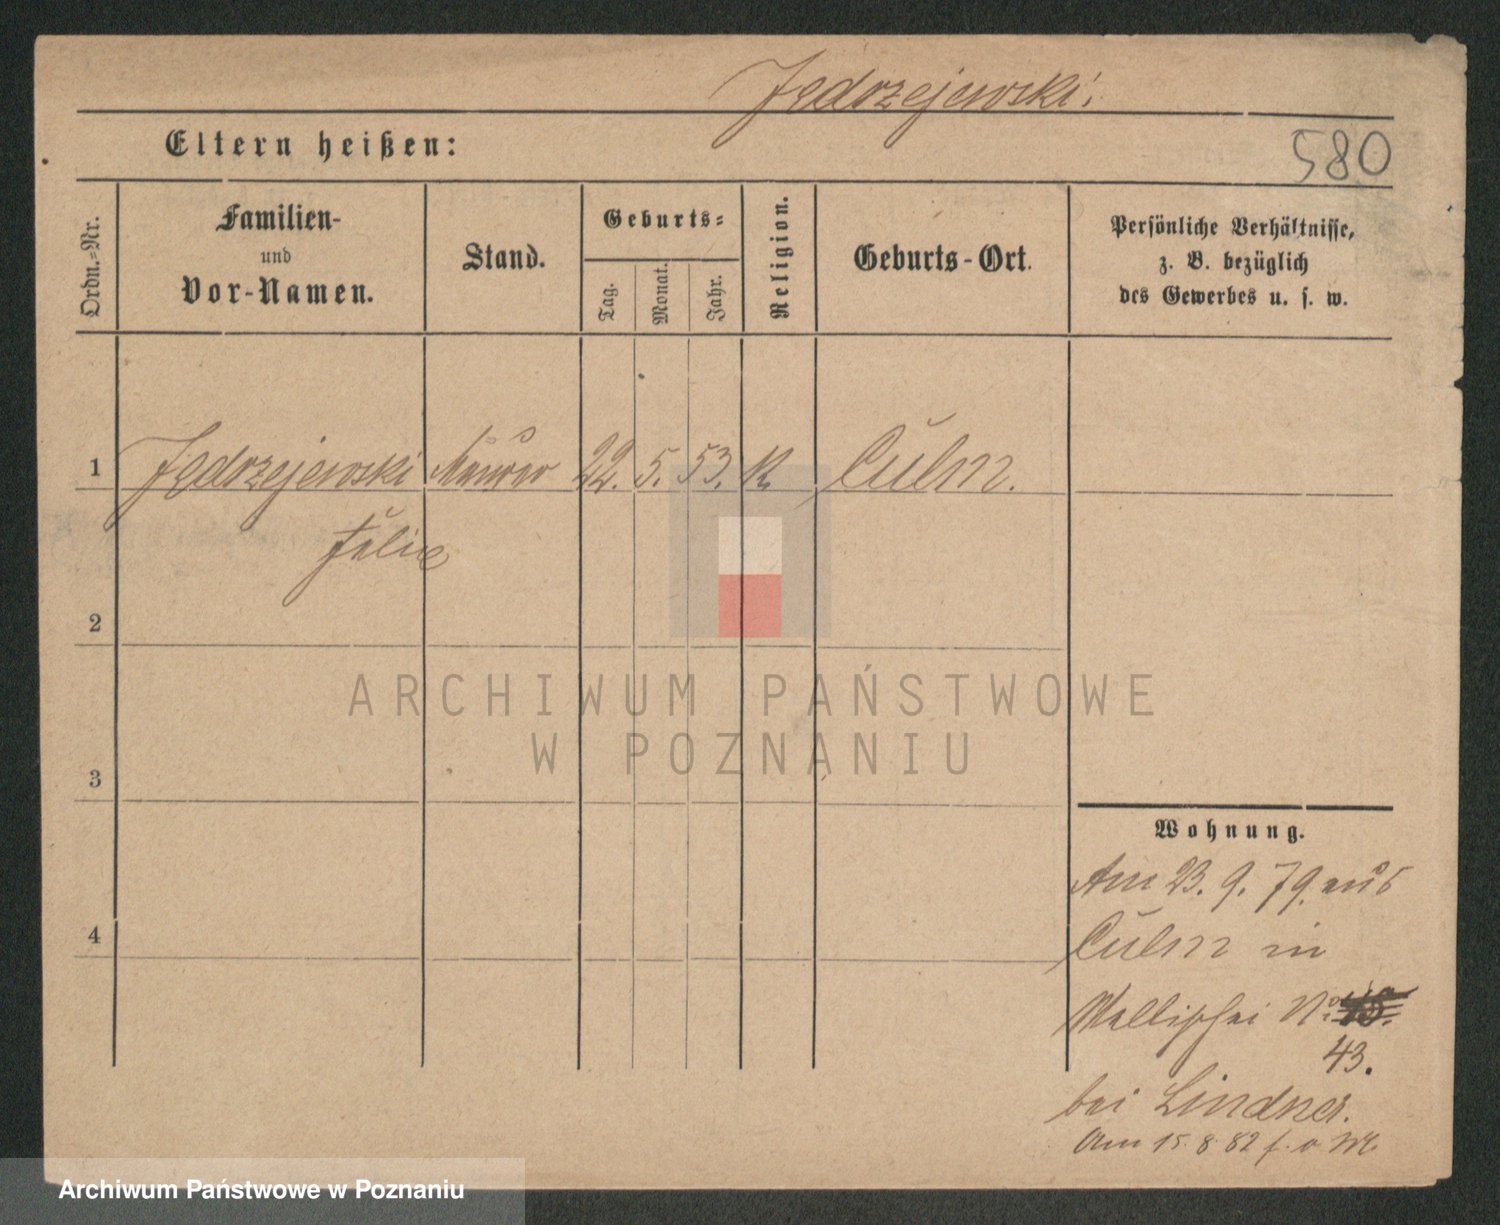 Jędrzejewski.
Eltern heißen:
580
Ordn.-Nr.
Familien-
und
Vor-Namen.
Stand.
Geburts-
Tag.
Monat.
Jahr.
Religion.
Geburts-Ort.
Persönliche Verhältnisse,
z. B. bezüglich
des Gewerbes u. s. w.
1 Jędrzejewski Maurer 22. 5. 53. K. Culm.
Julie
2
3
4
ARCHIWUM PAŃSTWOWE
W POZNANIU
Wohnung.
Am 23. 9. 79. aus
Culm in
Wallischei No.
43.
bei Lindner.
Am 15. 8. 82
Archiwum Państwowe w Poznaniu